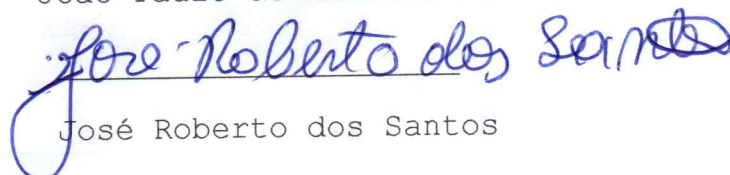 José Roberto dos Santos
José Roberto dos Santos